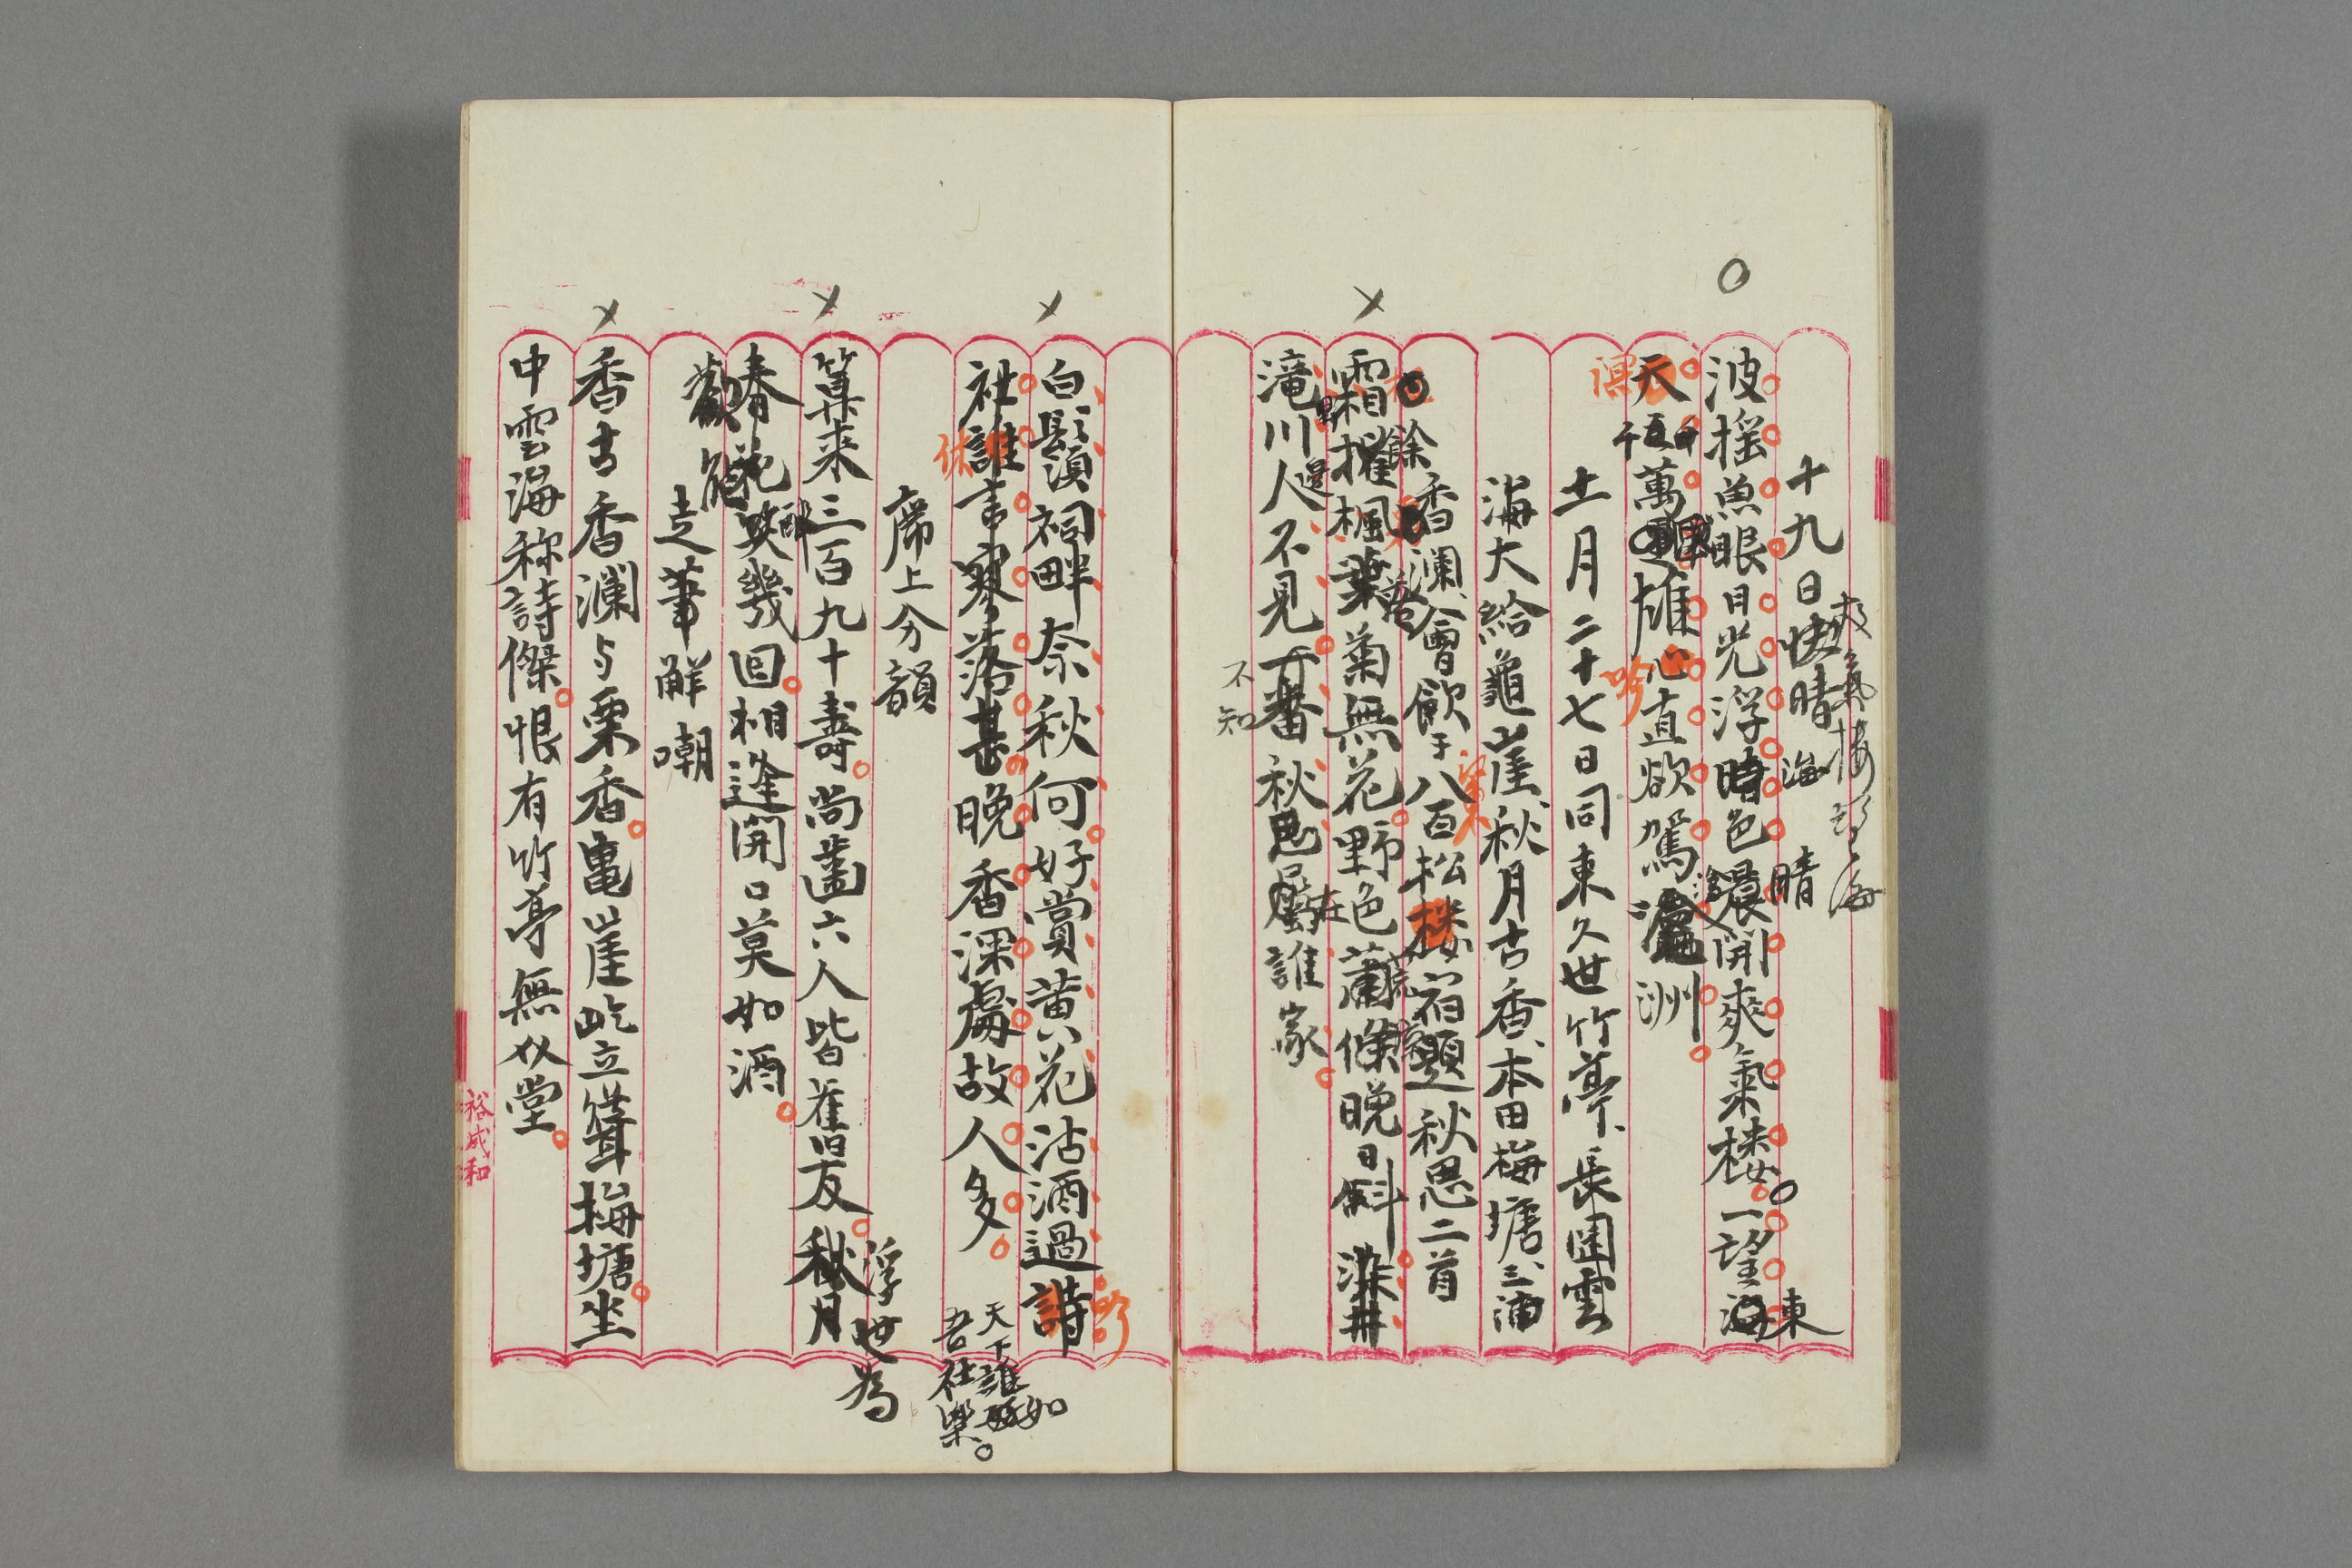 十九日快晴
爽氣楼望海
海晴
波揺魚眼日光浮時色晨開爽氣楼一望海
東
天千萬里雄心直欲駕瀛洲
吟
十一月二十七日同東久世竹亭、長岡雲
海大給龜崖、秋月古香、本田梅塘、三浦
香瀾、會飲于八百松楼、宿題秋思二首
霜摧楓葉菊無花野色蕭條晩日斜染井
餘
滝川人不見一番秋色屬誰家
邊
在
不知
白鬚祠畔奈秋何好賞黄花沽酒過詩
吟
社誰言寥落甚晩香深處故人多
休
天下誰如
吾社樂
席上分韻
算来三百九十壽尚歯六人皆舊友秋月
浮世為
春花笑幾回相逢開口莫如酒
歡
走筆解嘲
香古香瀾与栗香亀崖屹立聳梅塘坐
中雲海称詩傑恨有竹亭無草堂
裕咸和